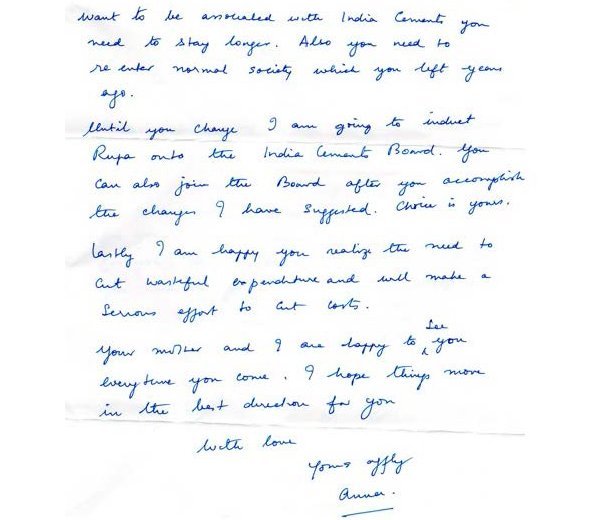 want to be associated with India Cements you
need to stay longer. Also you need to
re enter normal society which you left years
ago.
Until you change I am going to induct
Rupa onto the India Cements Board. You
can also join the Board after you accomplish
the changes I have suggested. Choice is yours.
Lastly I am happy you realize the need to
cut wasteful expenditure and will make a
serious effort to cut costs.
See
Your mother and I are happy to ^ you
everytime you come. I hope things move
in the best direction for you
With love
Yours affly